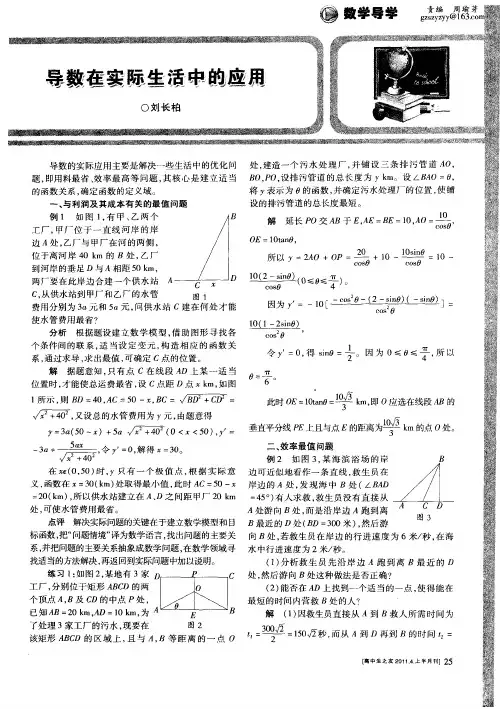 数学导学
责编 周瑜芽
gzszyzyy@163.com
导数在实际生活中的应用
○刘长柏
导数的实际应用主要是解决一些生活中的优化问
题,即用料最省、效率最高等问题,其核心是建立适当
的函数关系,确定函数的定义域。
一、与利润及其成本有关的最值问题
例1 如图1,有甲、乙两个
工厂,甲厂位于一直线河岸的岸
边A处,乙厂与甲厂在河的两侧,
位于离河岸40 km的B处,乙厂
到河岸的垂足D与A相距50 km,
两厂要在此岸边合建一个供水站
C,从供水站到甲厂和乙厂的水管
费用分别为3a元和5a元,问供水站C建在何处才能
使水管费用最省?
B
A C x D
图1
分析 根据题设建立数学模型,借助图形寻找各
个条件间的联系,适当设定变元,构造相应的函数关
系,通过求导,求出最值,可确定C点的位置。
解 据题意知,只有点C在线段AD上某一适当
位置时,才能使总运费最省,设C点距D点x km,如图
1所示,则BD=40,AC=50-x,BC=√(BD²+CD²)=
√(x²+40²),又设总的水管费用为y元,由题意得
y=3a(50-x)+5a√(x²+40²)(0<x<50),y′=
-3a+5ax/√(x²+40²),令y′=0,解得x=30。
在x∈(0,50)时,y只有一个极值点,根据实际意
义,函数在x=30(km)处取得最小值,此时AC=50-x
=20(km),所以供水站建立在A、D之间距甲厂20 km
处,可使水管费用最省。
点评 解决实际问题的关键在于建立数学模型和目
标函数,把“问题情境”译为数学语言,找出问题的主要关
系,并把问题的主要关系抽象成数学问题,在数学领域寻
找适当的方法解决,再返回到实际问题中加以说明。
练习1:如图2,某地有3家
工厂,分别位于矩形ABCD的两
个顶点A、B及CD的中点P处,
已知AB=20 km,AD=10 km,为
了处理3家工厂的污水,现要在
该矩形ABCD的区域上,且与A、B等距离的一点O
D P C
O
A θ E B
图2
处,建造一个污水处理厂,并铺设三条排污管道AO,
BO,PO,设排污管道的总长度为y km。设∠BAO=θ,
将y表示为θ的函数,并确定污水处理厂的位置,使铺
设的排污管道的总长度最短。
解 延长PO交AB于E,AE=BE=10,AO=10/cosθ,
OE=10tanθ,
所以y=2AO+OP=20/cosθ+10-10sinθ/cosθ=10-
10(2-sinθ)/cosθ(0≤θ≤π/4)。
因为y′=-10[(-cos²θ-(2-sinθ)(-sinθ))/cos²θ]=
10(1-2sinθ)/cos²θ,
令y′=0,得sinθ=1/2。因为0≤θ≤π/4,所以
θ=π/6。
此时OE=10tanθ=10√3/3 km,即O应选在线段AB的
垂直平分线PE上且与点E的距离为10√3/3 km的点O处。
二、效率最值问题
例2 如图3,某海滨浴场的岸
边可近似地看作一条直线,救生员在
岸边的A处,发现海中B处(∠BAD
=45°)有人求救,救生员没有直接从
A处游向B处,而是沿岸边A跑到离
B最近的D处(BD=300米),然后游
向B处,若救生员在岸边的行进速度为6米/秒,在海
水中行进速度为2米/秒。
B
A C D
图3
(1)分析救生员先沿岸边A跑到离B最近的D
处,然后游向B处这种做法是否正确?
(2)能否在AD上找到一个适当的一点,使得能在
最短的时间内营救B处的人?
解 (1)因救生员直接从A到B救人所需时间为
t₁=300√2/2=150√2秒,而从A到D再到B的时间t₂=
[高中生之友2011.4上半月刊] 25